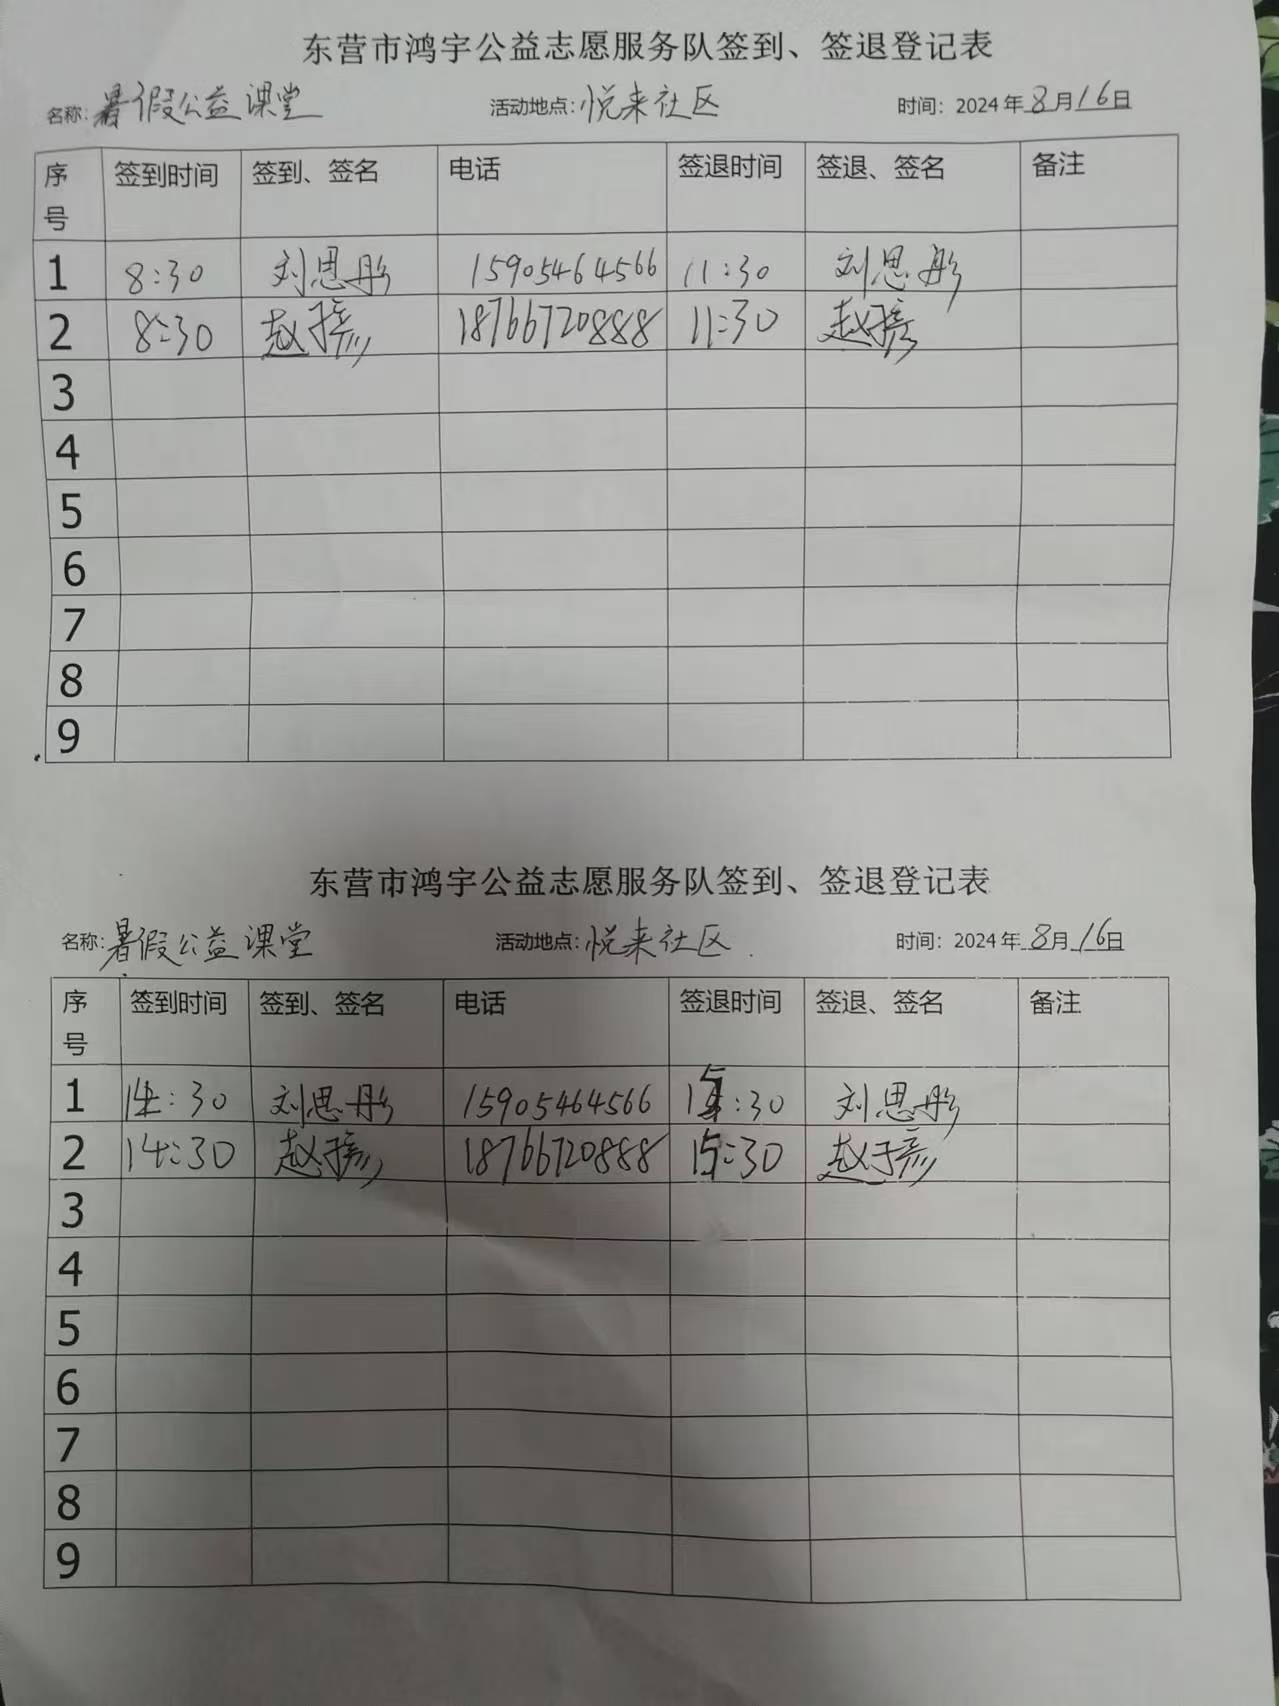 东营市鸿宇公益志愿服务队签到、签退登记表
名称:暑假公益课堂 活动地点:悦来社区 时间: 2024年8月16日
序号 签到时间 签到、签名 电话 签退时间 签退、签名 备注
1 8:30 刘思彤 15905464566 11:30 刘思彤
2 8:30 赵 18766720888 11:30 赵
3
4
5
6
7
8
9
东营市鸿宇公益志愿服务队签到、签退登记表
名称:暑假公益课堂 活动地点:悦来社区. 时间: 2024年8月16日
序号 签到时间 签到、签名 电话 签退时间 签退、签名 备注
1 14:30 刘思彤 15905464566 15:30 刘思彤
2 14:30 赵 18766720888 15:30 赵
3
4
5
6
7
8
9